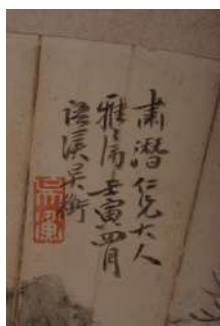 肃潜仁兄大人
雅属壬寅四月
语溪吴衡
吴衡